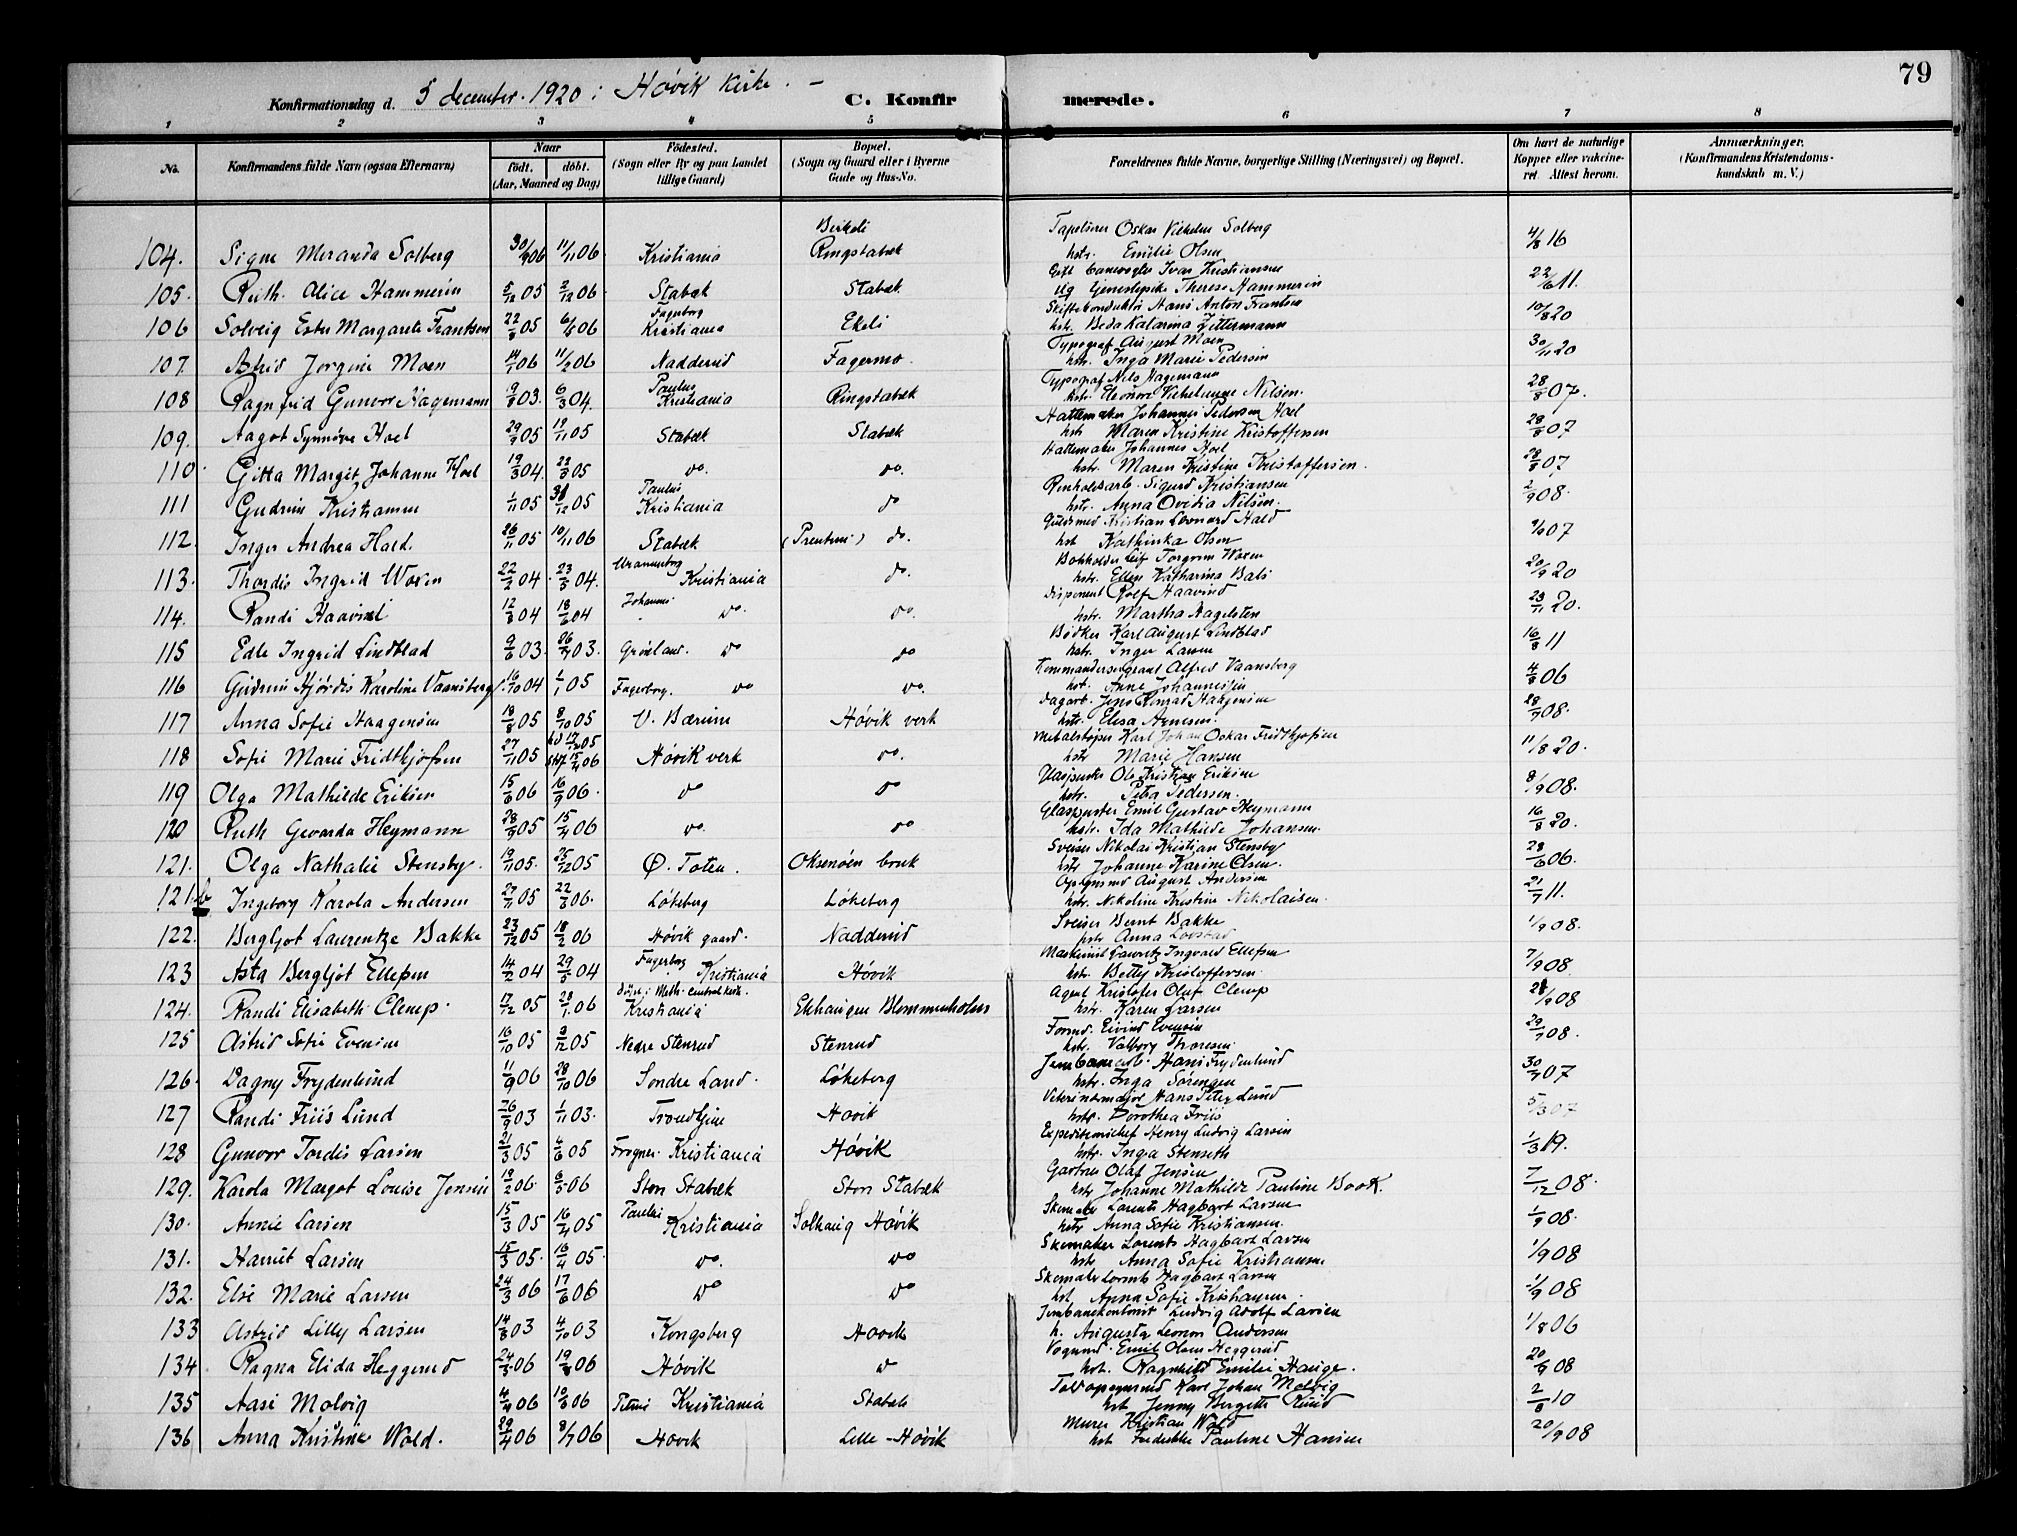 79
Konfirmationsdag d. 5 december. 1920 i Høvik Kirke. –
C. Konfirmerede.
1 2 3 4 5 6 7 8
No. Konfirmandens fulde Navn (ogsaa Efternavn) Naar födt. döbt. (Aar, Maaned og Dag) Födested. (Sogn eller By og paa Landet tillige Gaard) Bopæl. (Sogn og Gaard eller i Byerne Gade og Hus-No. Forældrenes fulde Navne, borgerlige Stilling (Næringsvei) og Bopæl. Om havt de naturlige Kopper eller vakcineret. Attest herom. Anmærkninger. (Konfirmandens Kristendomskundskab m. V.)
Birkeli Oskar Vilhelm Solberg
104. Signe Meranda Solberg 30/9 06 11/11 06 Kristiania Ringstabæk hstr. Emilie Olsen 4/8 16
Ivar Kristiansen
105. Ruth Alice Hammerin 5/12 05 2/12 06 Stabæk Stabæk Ug Therese Hammerin 22/6 11.
Fagerborg Hans Anton Frantsen
106 Solveig Ester Margarete Frantsen 22/8 05 6/6 06 Kristiania Ekeli hstr. Beda Katarina Zittermann 10/8 20
Typograf August Moen
107. Astrid Jorgine Moen 14/1 06 11/2 06 Nadderud Fagermo hstr. Inga Marie Pedersen 30/11 20
Paulus Typograf Nils Hagemann
108 Ragnfrid Gunvor Hagemann 19/8 03. 6/3 04. Kristiania Ringstabæk hstr. Eleonora Vilhelmine Nilsen. 28/8 07.
Hattemaker Johannes Pedersen Hoel
109. Aagot Synnøve Hoel 29/9 05 19/11 05 Stabæk Stabæk hstr Maren Kristine Kristoffersen 28/8 07
Hattemaker Johannes Hoel
110. Gitta Margit Johanne Hoel 19/3 04. 22/3 05 do. do. hstr. Maren Kristine Kristoffersen. 28/8 07
Paulus Sigurd Kristiansen
111 Gudrun Kristiansen 1/11 05 31/12 05 Kristiania do hstr. Anna Ovidia Nilsen. 2/9 08.
Guldsmed Kristian Leonard Hald
112. Inger Andrea Hald. 26/11 05 10/11 06 Stabæk do. hst Kathinka Olsen 07
Uranienborg Bokholder Leif Torgrim Woxen
113. Thordis Ingrid Woxen 22/2 04. 23/3 04. Kristiania do. hstr. Ellen Katharina Bals 20/9 20
Johannes Disponent Rolf Haavind
114. Randi Haavind 12/3 04 18/6 04 do. do. hstr. Martha Hagelsten 23/11 20.
Bødker Karl August Lindblad
115 Edle Ingrid Lindblad 9/6 03 26/7 03. Grønland. do do hstr. Inger Larsen 16/8 11
Kommandersergeant Alfred Vaansberg
116 Gudrun Hjørdis Karoline Vaansberg 16/10 04 1/1 05 Fagerborg. do do. hst. Anne Johannessen 4/8 06
Dagarb. Jens Konrad Haagensen
117 Anna Sofie Haagensen 18/8 05 8/10 05 V. Bærum Høvik verk hstr. Elisa Arnesen. 28/7 08.
Metalstøper Karl Johan Oskar Fridthjofsen
118 Sofie Marie Fridthjofsen 27/11 05 hd 17/12 05 stf 15/4 06 Høvik verk do. hstr Marie Hansen 11/8 20.
Ole Kristian Eriksen
119 Olga Mathilde Eriksen 15/6 06 16/9 06. do do hstr. Petra Pedersen. 8/9 08.
Glaspuster Emil Gustav Heymann
120 Ruth Gevarda Heymann 28/9 05 15/4 06 do. do hstr. Ida Mathilde Johansen. 16/8 20.
Sveiser Nikolai Kristian Stensby
121. Olga Nathalie Stensby. 19/11 05. 26/12 05 Ø. Toten. Oksenøen bruk hstr Johanne Karine Olsen. 28/6 06.
Opsynsmd August Andersen
121.b Ingeborg Karola Andersen 27/11 05 22/3 06. Løkeberg Løkeberg hstr. Nikoline Kristine Nikolaisen. 21/7 11.
Sveiser Bernt Bakke
122. Bergljot Laurentze Bakke 23/12 05 18/2 06 Høvik gaard. Nadderud hstr Anna 1/9 08.
Fagerborg Maskinist Lauritz Ingvald Ellefsen
123 Asta Bergljot Ellefsen 14/2 04 29/5 04 Kristiania Høvik hstr. Betty Kristoffersen. 7/9 08.
Døpt i Meth. Centralkirke. Agent Kristofer Oluf Clemp
124. Randi Elisabeth Clemp. 17/2 05 28/1 06 Kristiania Ekhaugen Blommenholm hstr. Karen Larsen 28/9 08
Formd. Eivind Evensen
125 Astrid Sofie Evensen 16/10 05 3/12 05 Nedre Stenrud Stenrud hstr. Valborg Thoresen. 29/7 08.
Jernbanearb. Hans Frydenlund
126. Dagny Frydenlund 11/9 06 28/10 06 Søndre Land. Løkeberg hstr. Inga Sørensen 30/7 07
Veterinærmajor Hans Peter Lund
127 Randi Friis Lund 26/9 03 1/11 03. Trondhjem Høvik hstr. Dorothea Friis 5/3 07
Expeditionschef Henry Ludvig Larsen
128 Gunvor Tordis Larsen 21/3 05 4/6 05 Frogner. Kristiania Høvik hstr. Inga Stenseth 1/3 19.
Gartner Olaf Jensen
129. Karola Margot Louise Jensen 19/2 06. 6/5 06 Store Stabæk Store Stabæk hstr Johanne Mathilde Pauline Book. 7/12 08.
Paulus Skomaker Lorents Hagbart Larsen
130. Annie Larsen 15/3 05 16/4 05 Kristiania Solhaug Høvik hstr Anna Sofie Kristiansen. 1/9 08.
Skomaker Lorents Hagbart Larsen
131. Harriet Larsen 15/3 05. 16/4 05. do. do hstr Anna Sofie Kristiansen 1/9 08
Skomaker Lorents Hagbart Larsen
132. Else Marie Larsen 24/3 06 17/6 06 do do hst. Anna Sofie Kristiansen. 1/9 08
Jernbanekontorist Ludvig Adolf Larsen
133 Astrid Lilly Larsen 14/8 03 4/10 03 Kongsberg Høvik h. Augusta Leonore Andersen 1/8 06
Vognmd. Emil Olsen Heggerud
134. Ragna Elida Heggerud 24/5 06 19/8 06 Høvik do hst. Ragnhild Emilie Hauge. 20/9 08
Toldopsynsmd Karl Johan Molvig
135 Aase Molvig 4/4 06 10/6 06 Petrus Kristiania Stabæk hst Jenny Bergette Ruud 2/8 10
Murer Kristian Wold
136. Anna Kristine Wold. 29/4 06 8/7 06 Høvik Lille-Høvik hst Fredrikke Pauline Hansen 20/9 08